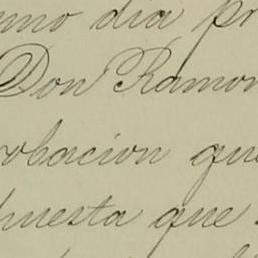 mo dia pr
Don Ramon
robacion que
puesta que